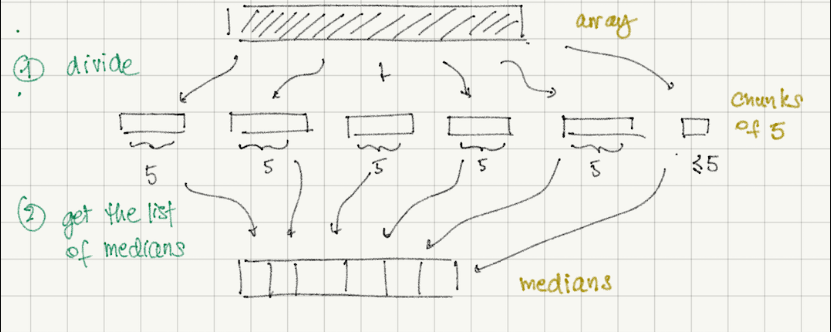 array
① divide
chunks
of 5
5 5 5 5 5 ≤5
② get the list
of medians
medians